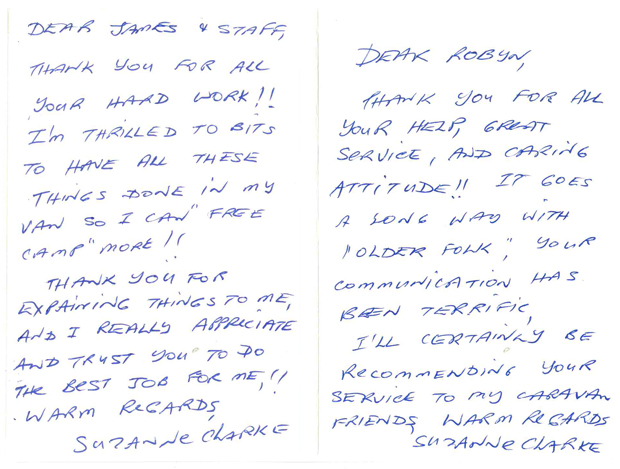 DEAR JAMES & STAFF,
THANK YOU FOR ALL
YOUR HARD WORK!!
I'm THRILLED TO BITS
TO HAVE ALL THESE
THINGS DONE IN MY
VAN SO I CAN "FREE
CAMP" MORE!!
THANK YOU FOR
EXPAINING THINGS TO ME,
AND I REALLY APPRECIATE
AND TRUST YOU TO DO
THE BEST JOB FOR ME,!!
WARM REGARDS,
SUZANNE CLARKE
DEAR ROBYN,
THANK YOU FOR ALL
YOUR HELP, GREAT
SERVICE, AND CARING
ATTITUDE!! IT GOES
A LONG WAY WITH
"OLDER FOLK", YOUR
COMMUNICATION HAS
BEEN TERRIFIC,
I'LL CERTAINLY BE
RECOMMENDING YOUR
SERVICE TO MY CARAVAN
FRIENDS, WARM REGARDS
SUZANNE CLARKE